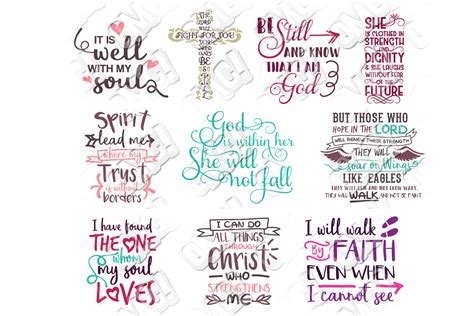 IT IS
well
WITH MY
soul
THE
LORD
WILL
FIGHT FOR YOU
BE STILL
BE
Still
AND KNOW
THAT I AM
God
SHE
IS CLOTHED IN
STRENGTH
AND
DIGNITY
& SHE LAUGHS
WITHOUT FEAR
OF THE
FUTURE
Spirit
lead me
where my
Trust
is without
borders
God
is within her
She will
not fall
BUT THOSE WHO
HOPE IN THE LORD
WILL RENEW THEIR STRENGTH
THEY WILL
soar on Wings
LIKE EAGLES
THEY WILL RUN AND NOT GROW WEARY,
THEY WILL WALK AND NOT BE FAINT
I have found
THE ONE
whom
my soul
LOVES
I CAN DO
ALL THINGS
THROUGH
Christ
WHO
STRENGTHENS
ME
I will walk
By FAITH
EVEN WHEN
I cannot see